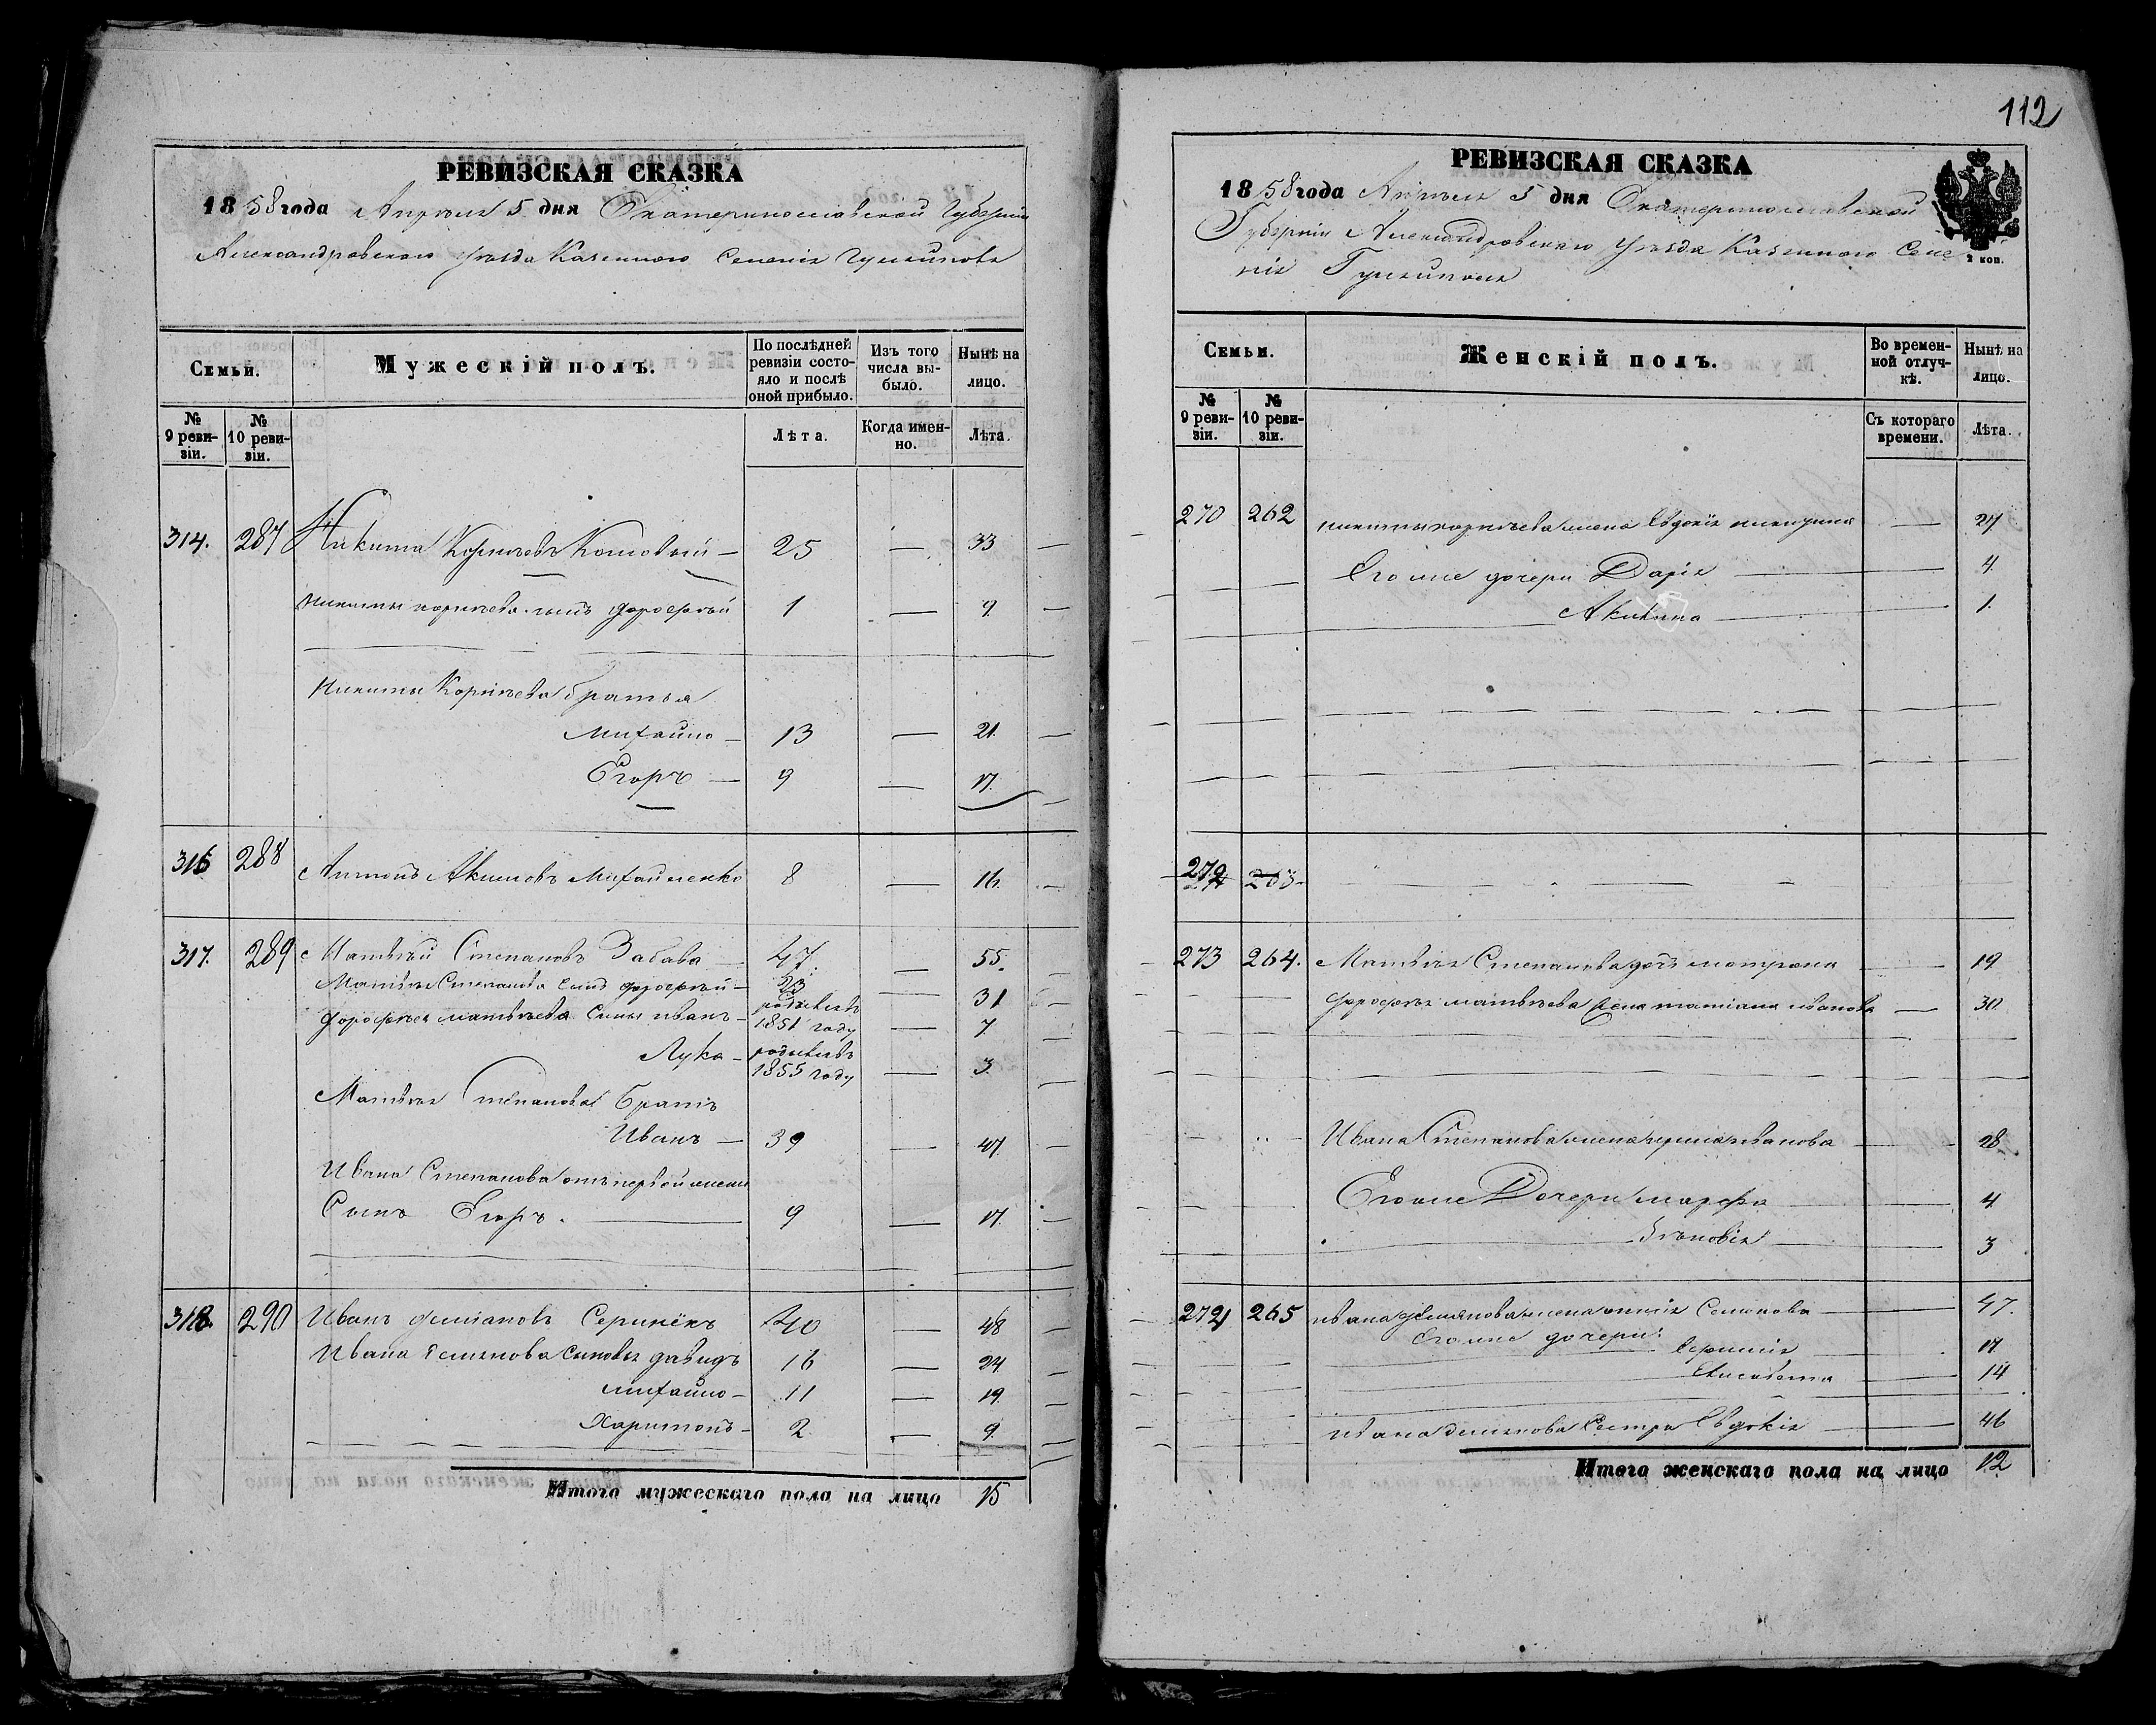 РЕВИЗСКАЯ СКАЗКА
1858 года Апреля 5 дня Екатеринославской Губернии
Александровского уезда Казенного Селенія Гуляйполя
Семьи.
Мужескій полъ.
По послѣдней ревизіи состояло и послѣ оной прибыло.
Изъ того числа выбыло.
Нынѣ на лицо.
№ 9 ревизіи.
№ 10 ревизіи.
Лѣта.
Когда именно.
Лѣта.
314. 287 Никита Корнѣевъ — 25 — 33 —
Никиты Корнѣева сынъ Дорофѣй 1 — 9 —
Никиты Корнѣева братья
Михайло — 13 — 21. —
Егоръ — 9 — 17. —
316 288 Антонъ Акимовъ Михайленко 8 — 16. —
317. 289 Матвѣй Степановъ Забава — 47. — 55. —
Матвѣя Степанова сынъ Дорофѣй — 23 — 31
Дорофѣя Матвѣева сыны Иванъ — родился въ 1851 году — 7 —
Лука — родился въ 1855 году — 3. —
Матвѣя Степанова братъ
Иванъ — 39 — 47. —
Ивана Степанова отъ первой жены
Сынъ Егоръ. — 9 — 17. —
318. 290 Иванъ Демяновъ 40 — 48 —
Ивана Демянова сыновья Давидъ 16 — 24 —
Михайло — 11 — 19. —
Харитонъ — 2 — 9. —
Итого мужескаго пола на лицо 15
112
РЕВИЗСКАЯ СКАЗКА
1858 года Апреля 5 дня Екатеринославской
Губерніи Александровского уезда Казенного Селе
нія Гуляйполя
2 коп.
Семьи.
Женскій полъ.
Во временной отлучкѣ.
Нынѣ на лицо.
№ 9 ревизіи.
№ 10 ревизіи.
Съ котораго времени.
Лѣта.
270 262 Никиты Корнѣева жена Евдокія — 27
Его же дочери Дарія — 4.
Акилина — 1.
272 263
273 264. Матвѣя Степанова дочь Мотрона — 19
Дорофѣя Матвѣева жена Татіана Иванова — 30.
Ивана Степанова жена Иванова — 28.
Его же Дочери Марфа — 4
Зѣновія — 3
274 265 Ивана Демянова жена Семенова — 47.
Его же дочери:
Ефимія — 17
— 14
Ивана Демянова Сестра Евдокія — 46
Итого женскаго пола на лицо 12.